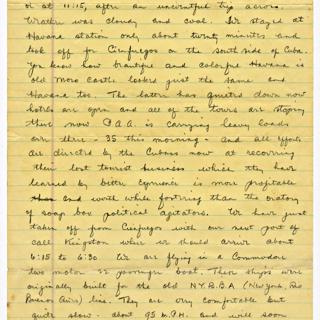 or at 11:15, after an uneventful trip across.
Weather was cloudy and cool. We stayed at
Havana station only about twenty minutes and
took off for Cienfuegos on the south side of Cuba.
You know how beautiful and colorful Havana is
old Moro Castle looks just the same and
Havana too. The latter has quieted down now
hotels are open and all of the tours are stopping
there now P.A.A. is carrying heavy loads
are there - 35 this morning - and all efforts
are directed by the Cubans now at recovering
their lost tourist business which they have
learned by bitter experience is more profitable
and worth fostering than the oratory
of soap box political agitators. We have just
taken off from Cienfuegos with our next port of
call Kingston where we should arrive about
6:15 to 6:30. We are flying in a Commodore
two motor 22 passenger boat. These ships were
originally built for the old N.Y.R.B.A (New York, Rio
Buenos Aires) line. They are very comfortable but
quite slow - about 95 M.P.H. and will soon